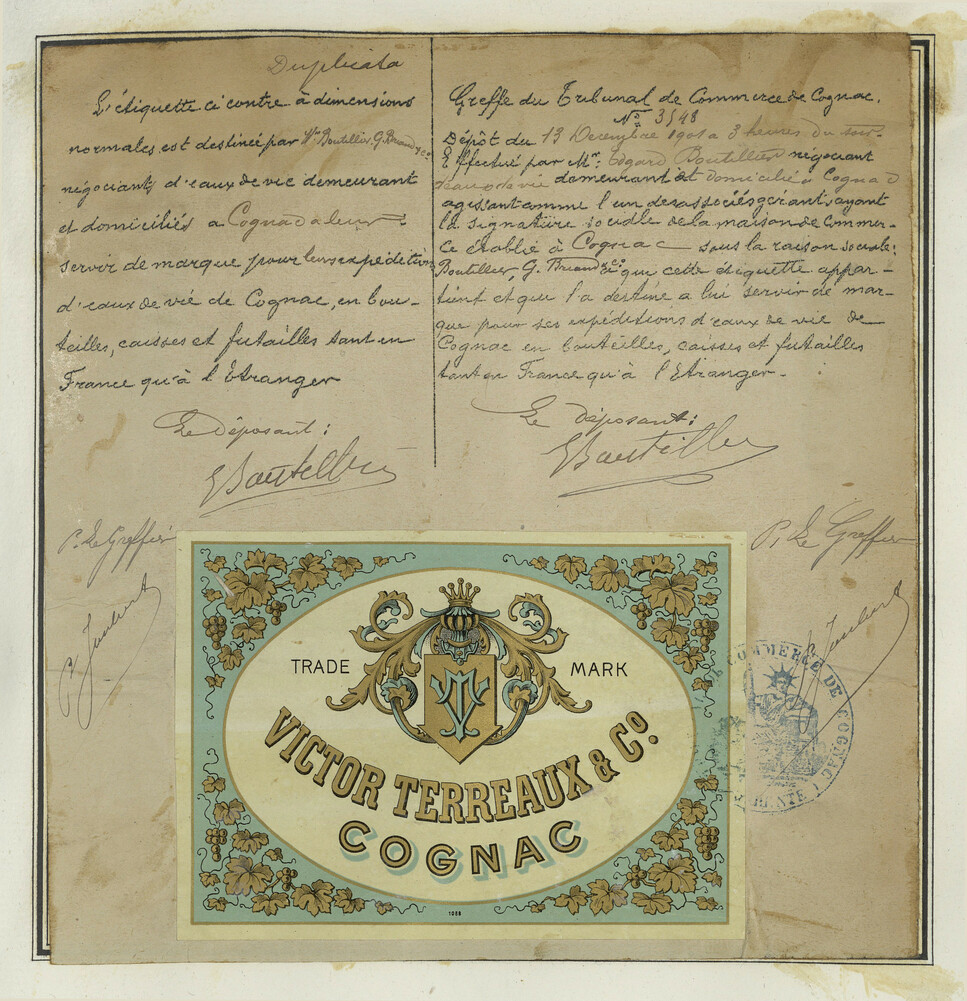 Duplicata
L'étiquette ci contre à dimensions
normales, est destinée par Wm Boutillier, G. Briand & Co
négociants d'eaux de vie demeurant
et domiciliés a Cognac a leur
servir de marque pour leurs expéditions
d'eaux de vie de Cognac, en bou-
teilles, caisses et futailles tant en
France qu'à l'Etranger
Le Déposant:
EBoutellier
P. Le Greffier
Greffe du Tribunal de Commerce de Cognac.
No 3548
Dépôt du 13 Decembre 1901 a 3 heures du soir.
Effectué par Mr. Edgard Boutillier négociant
d'eaux de vie demeurant et domicilié à Cognac
agissant comme l'un des associés gérant, ayant
la signature sociale de la maison de Commer-
ce établie à Cognac sous la raison sociale:
Boutillier, G. Briand & Co que cette étiquette appar-
tient et que l'a destine a lui servir de mar-
que pour ses expéditions d'eaux de vie de
Cognac en bouteilles, caisses et futailles
tant en France qu'à l'Etranger.
Le déposant:
EBoutillier
P. Le Greffier
TRADE MARK
VTC
VICTOR TERREAUX & Co.
COGNAC
1028
COMMERCE DE COGNAC